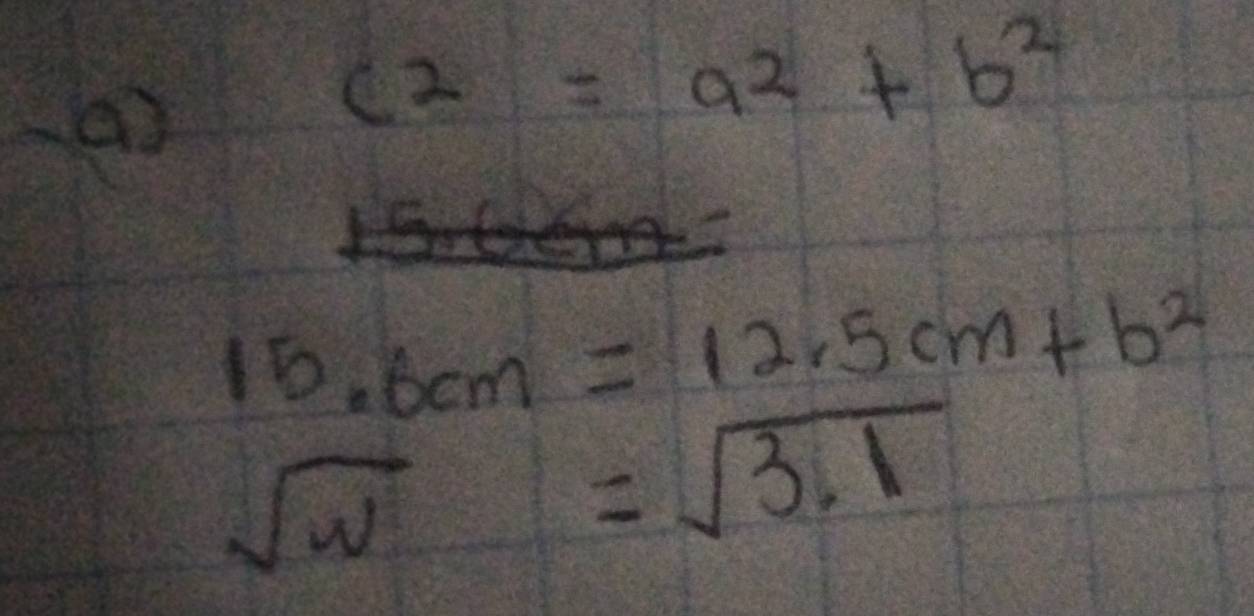 a) c2 = a2 + b²
15.6cm =
15.6cm = 12.5cm + b²
√w = √3.1